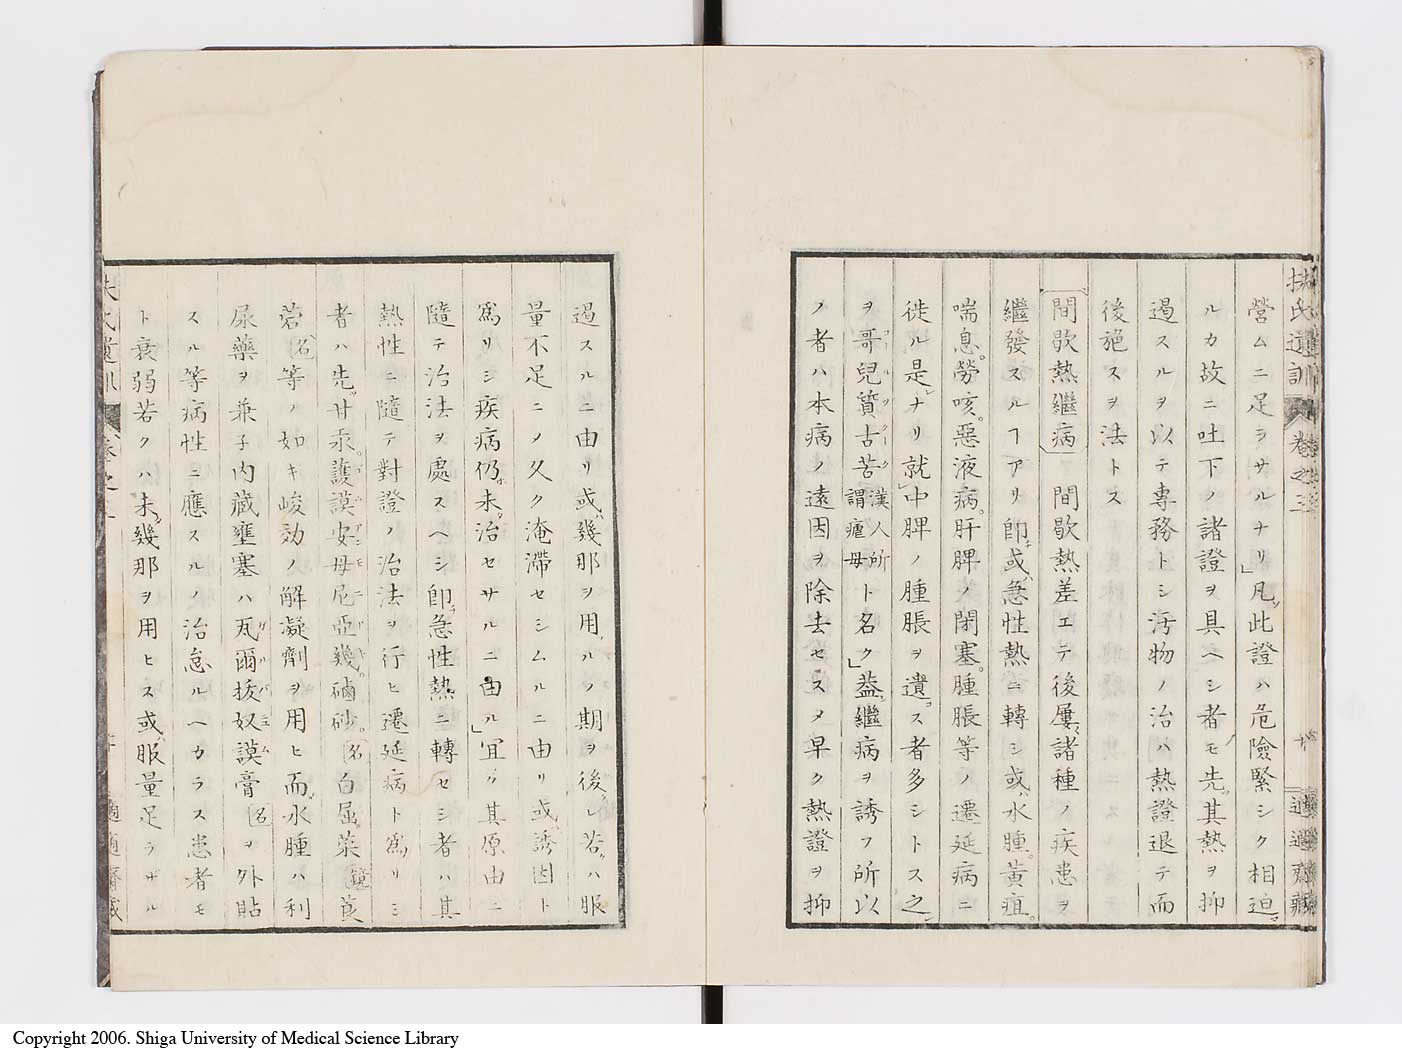 扶氏遺訓 卷之三 十 適適齋藏
營ムニ足ラサルナリ」凡此證ハ危險緊シク相迫
ルカ故ニ吐下ノ諸證ヲ具ヘシ者モ先其熱ヲ抑
遏スルヲ以テ專務トシ汚物ノ治ハ熱證退テ而
後施スヲ法トス
間歇熱繼病 間歇熱差エテ後屢諸種ノ疾患ヲ
繼發スルヿアリ卽或ハ急性熱ニ轉シ或ハ水腫。黃疸。
喘息。勞咳。惡液病。肝脾ノ閉塞。腫脹等ノ遷延病ニ
徙ル是ナリ就中脾ノ腫脹ヲ遺ス者多シトス之
ヲ哥兒質古苦 漢人所謂瘧母 ト名ク」葢繼病ヲ誘フ所以
ノ者ハ本病ノ遠因ヲ除去セスメ早ク熱證ヲ抑
遏スルニ由リ或ハ幾那ヲ用ルノ期ヲ後レ若クハ服
量不足ニメ久ク淹滯セシムルニ由リ或ハ誘因ト
爲リシ疾病仍ホ未治セサルニ由ル」宜ク其原由ニ
隨テ治法ヲ處スヘシ卽チ急性熱ニ轉セシ者ハ其
熱性ニ隨テ對證ノ治法ヲ行ヒ遷延病ト爲リシ
者ハ先ツ甘汞。護謨安母尼亞幾。磠砂。名 白屈菜 莨
菪 名 等ノ如キ峻効ノ解凝劑ヲ用ヒ而水腫ハ利
尿藥ヲ兼子内藏壅塞ハ瓦爾抜奴謨膏 名 ヲ外貼
スル等病性ニ應スルノ治怠ルヘカラス患者モ
ト衰弱若クハ未タ幾那ヲ用ヒス或ハ服量足ラザル